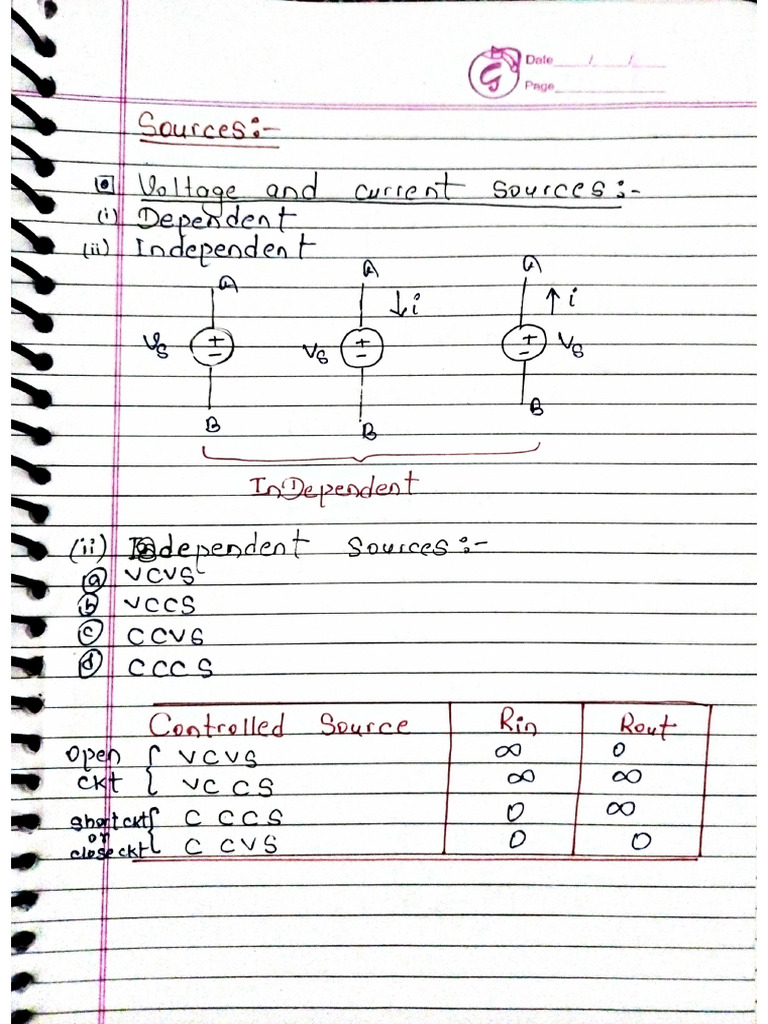 G
Date / /
Page
Sources:-
Voltage and current sources:-
(i) Dependent
(ii) Independent
A A A
↓i ↑i
Vs + - Vs + - + - Vs
B B B
InDependent
(ii) dependent sources:-
(a) VCVS
(b) VCCS
(c) CCVS
(d) CCCS
Controlled Source Rin Rout
open { VCVS ∞ 0
ckt VCCS ∞ ∞
short ckt { CCCS 0 ∞
or
close ckt CCVS 0 0